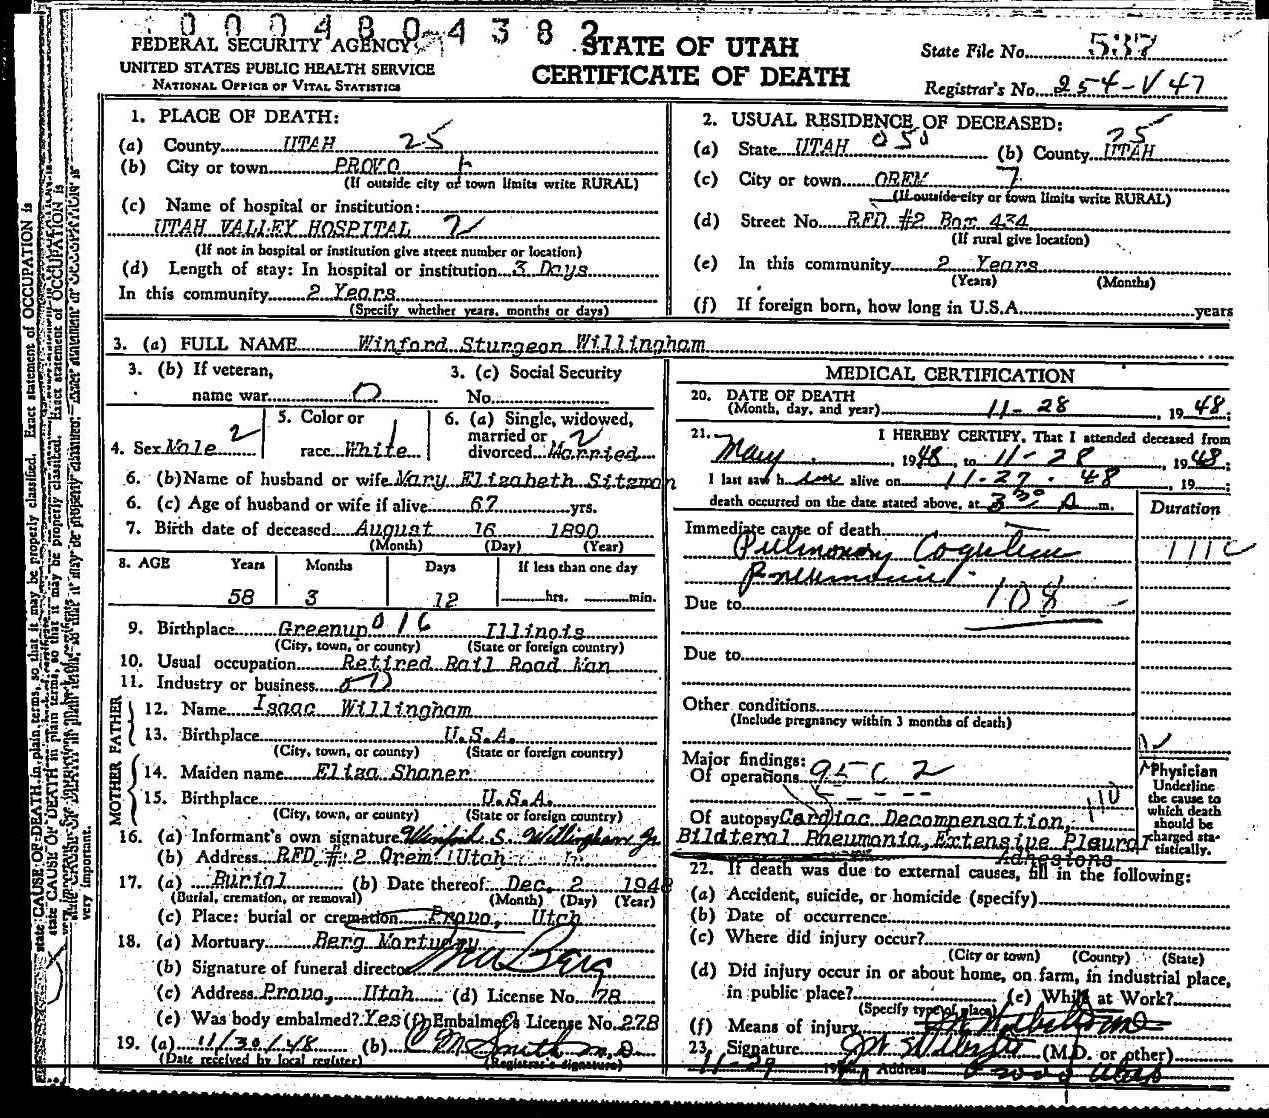 0 0 0 4 8 0 4 3 8 2
FEDERAL SECURITY AGENCY
UNITED STATES PUBLIC HEALTH SERVICE
NATIONAL OFFICE OF VITAL STATISTICS
STATE OF UTAH
CERTIFICATE OF DEATH
State File No. 537
Registrar's No. 254-V47
1. PLACE OF DEATH:
(a) County UTAH 25
(b) City or town PROVO
(If outside city or town limits write RURAL)
(c) Name of hospital or institution:
UTAH VALLEY HOSPITAL 2
(If not in hospital or institution give street number or location)
(d) Length of stay: In hospital or institution 3 Days
In this community 2 Years
(Specify whether years, months or days)
2. USUAL RESIDENCE OF DECEASED:
(a) State UTAH 050 (b) County UTAH 25
(c) City or town OREM 7
(If outside city or town limits write RURAL)
(d) Street No. RFD #2 Box 434
(If rural give location)
(e) In this community 2 Years
(Years) (Months)
(f) If foreign born, how long in U.S.A. years
3. (a) FULL NAME Winford Sturgeon Willingham
3. (b) If veteran, name war O
3. (c) Social Security No.
4. Sex Male 2
5. Color or race White 1
6. (a) Single, widowed, married or divorced Married 2
6. (b) Name of husband or wife Mary Elizabeth Sitzman
6. (c) Age of husband or wife if alive 67 yrs.
7. Birth date of deceased August 16 1890
(Month) (Day) (Year)
8. AGE Years Months Days If less than one day
58 3 12 hrs. min.
9. Birthplace Greenup 016 Illinois
(City, town, or county) (State or foreign country)
10. Usual occupation Retired Rail Road Man
11. Industry or business
FATHER
12. Name Isaac Willingham
13. Birthplace U.S.A.
(City, town, or county) (State or foreign country)
MOTHER
14. Maiden name Eliza Shaner
15. Birthplace U.S.A.
(City, town, or county) (State or foreign country)
16. (a) Informant's own signature Winford S. Willingham Jr
(b) Address RFD # 2 Orem Utah
17. (a) Burial (b) Date thereof Dec. 2 1948
(Burial, cremation, or removal) (Month) (Day) (Year)
(c) Place: burial or cremation Provo, Utah
18. (a) Mortuary Berg Mortuary
(b) Signature of funeral director Berg
(c) Address Provo, Utah (d) License No. 78
(e) Was body embalmed? Yes (f) Embalmer's License No. 278
19. (a) 11/30/48 (b) C M Smith M.D
(Date received by local register) (Registrar's signature)
MEDICAL CERTIFICATION
20. DATE OF DEATH
(Month, day, and year) 11-28, 1948;
21. I HEREBY CERTIFY, That I attended deceased from
May, 1948, to 11-28, 1948;
I last saw him alive on 11-27-48, 19;
death occurred on the date stated above, at 3 30 A m.
Duration
Immediate cause of death
Pulmonary
Pneumonia
Due to 108
Due to
Other conditions
(Include pregnancy within 3 months of death)
Major findings:
Of operations 95C 2
110
Of autopsy Cardiac Decompensation,
Bilateral Pneumonia, Extensive Pleural
Adhesions
Physician
Underline
the cause to
which death
should be
charged sta-
tistically.
22. If death was due to external causes, fill in the following:
(a) Accident, suicide, or homicide (specify)
(b) Date of occurrence
(c) Where did injury occur?
(City or town) (County) (State)
(d) Did injury occur in or about home, on farm, in industrial place,
in public place? (e) While at Work?
(Specify type of place)
(f) Means of injury
23. Signature (M.D. or other)
11-29 Address Provo Utah
state CAUSE OF DEATH in plain terms, so that it may be properly classified. Exact statement of OCCUPATION is
very important.